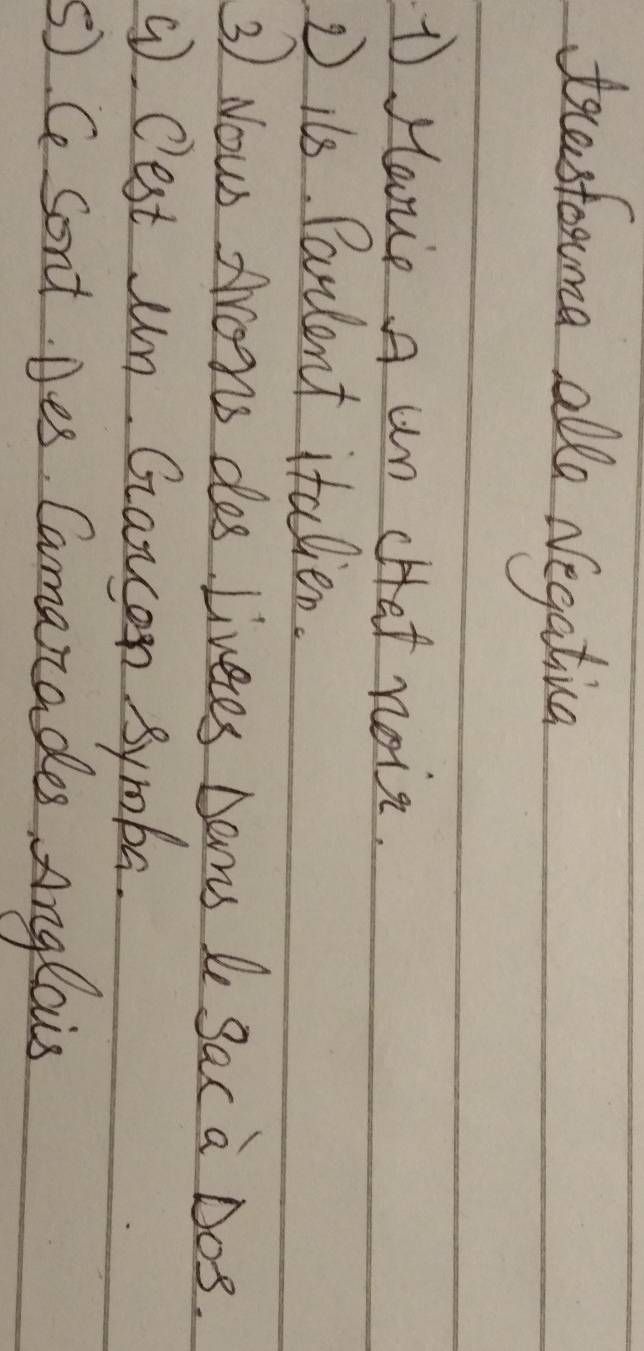 trasforma alla Negativa
1) Marie A un cHat noir.
2) ils Parlent italien.
3) Nous Avons des Livres Dans le sac à Dos.
4) C'est un Garçon Sympa.
5) Ce Sont Des Camarades Anglais